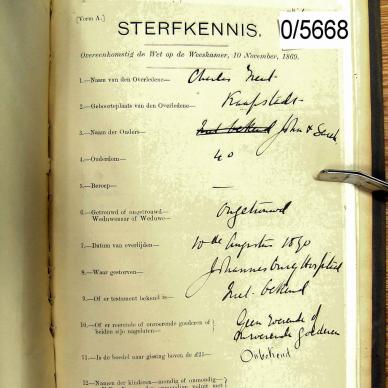 [Vorm A.]
STERFKENNIS.
0/5668
Overeenkomstig de Wet op de Weeskamer, 10 November, 1869.
1.—Naam van den Overledene— Charles
2.—Geboorteplaats van den Overledene— Kaapstadt
3.—Naam der Ouders— Niet bekend John &
4.—Ouderdom— 40
5.—Beroep— —
6.—Getrouwd of ongetrouwd—
Weduwenaar of Weduwe— Ongetrouwd
7.—Datum van overlijden— 10de Augustus 1890
8.—Waar gestorven— Johannesburg Hospitaal
9.—Of er testament bekend is— Niet bekend
10.—Of er roerende of onroerende goederen of
beiden zijn nagelaten— Geen roerende of
onroerende goederen
11.—Is de boedel naar gissing boven de £15— Onbekend
12.—Namen der kinderen—mondig of onmondig—